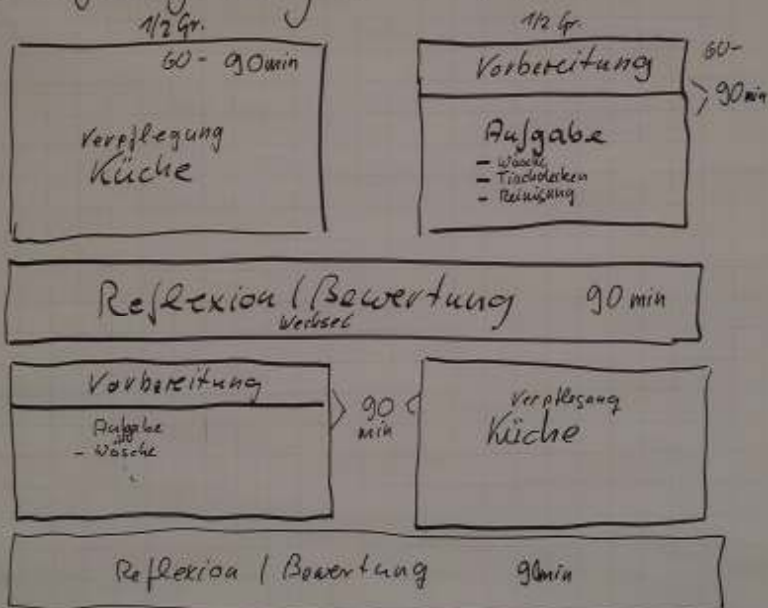 1/2 Gr.
60 - 90min
Verpflegung
Küche
1/2 Gr.
Vorbereitung
60-
90 min
Aufgabe
- Wäsche
- Tischdecken
- Reinigung
Reflexion / Bewertung 90 min
Wechsel
Vorbereitung
Aufgabe
- Wäsche
90
min
Verpflegung
Küche
Reflexion / Bewertung 90min